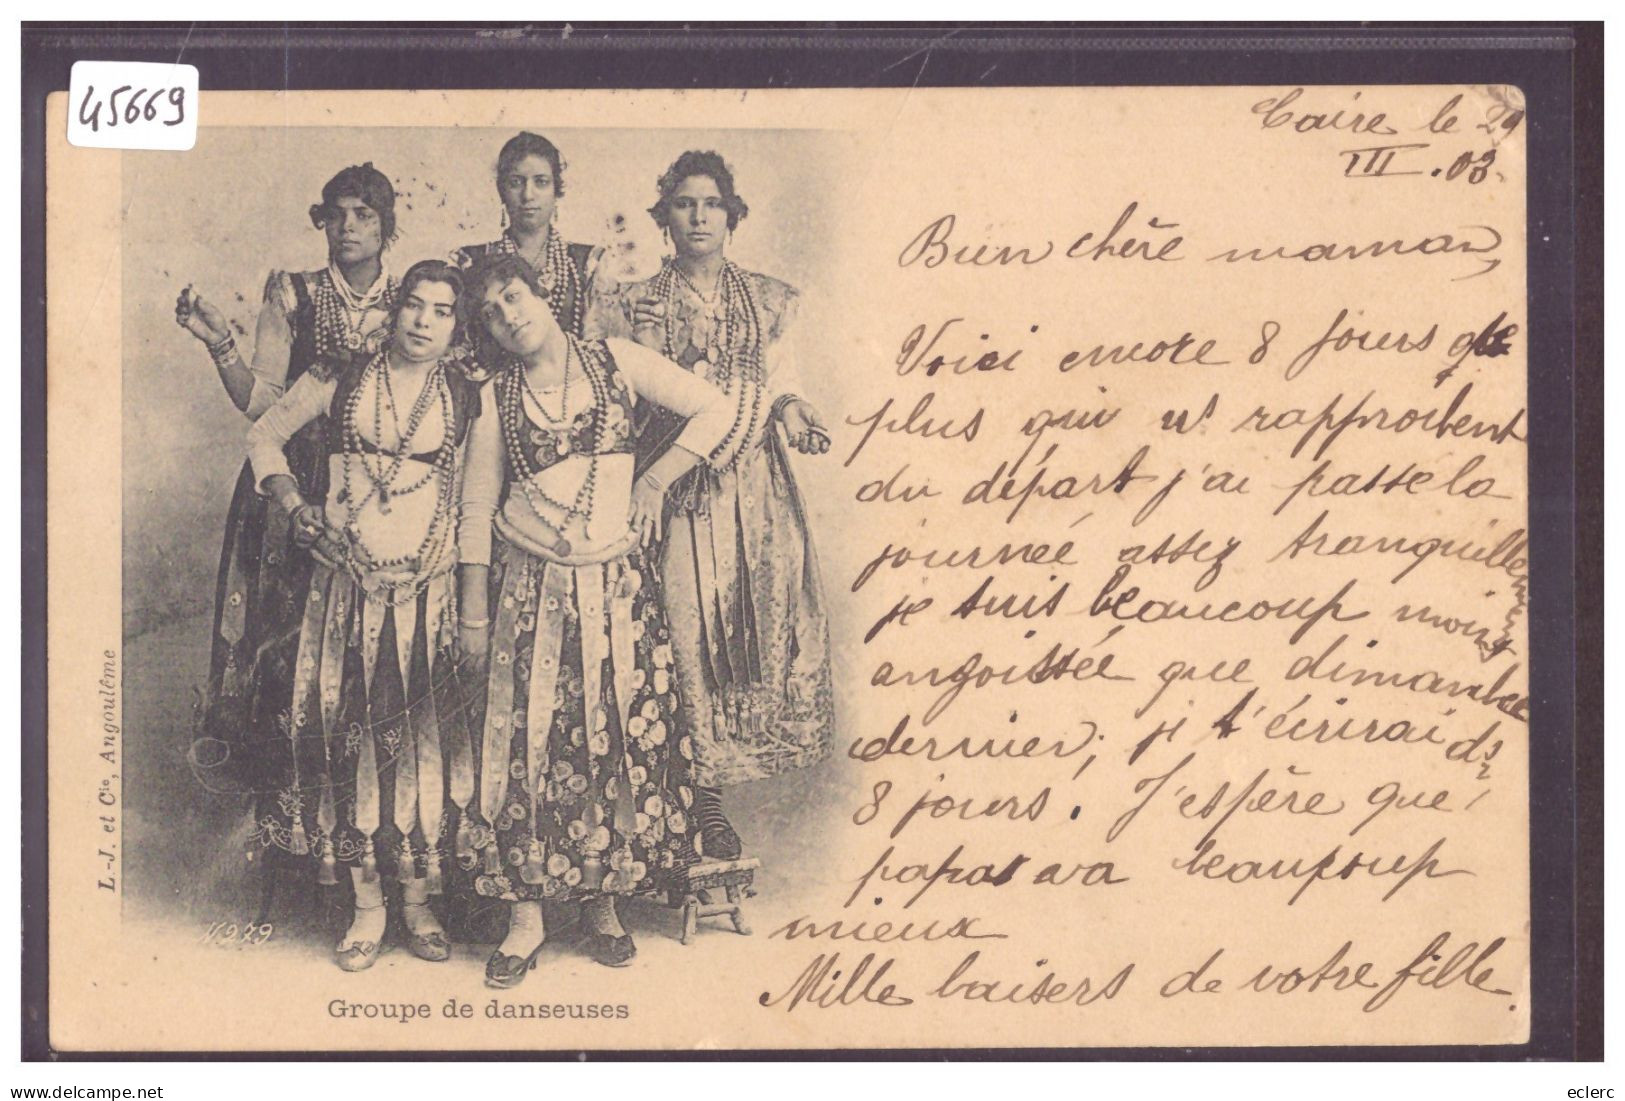 45669
Caire le 29
III .03.
Bien chère maman,
Voici encore 8 jours de
plus qui ns rapprochent
du départ j'ai passé la
journée assez tranquillement
je suis beaucoup moins
angoissée que dimanche
dernier, je t'écrirai ds
8 jours. J'espère que
papa va beaucoup
mieux
Mille baisers de votre fille.
L.-J. et Cie, Angoulême
N279
Groupe de danseuses
eclerc